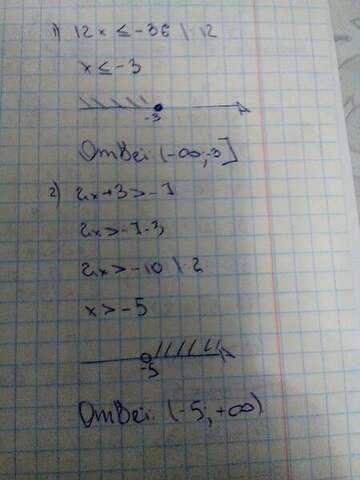 1) 12x ≤ -36 | :12
x ≤ -3
-3
Ответ: (-∞; -3]
2) 2x+3 > -7
2x > -7-3
2x > -10 | :2
x > -5
-5
Ответ: (-5, +∞)